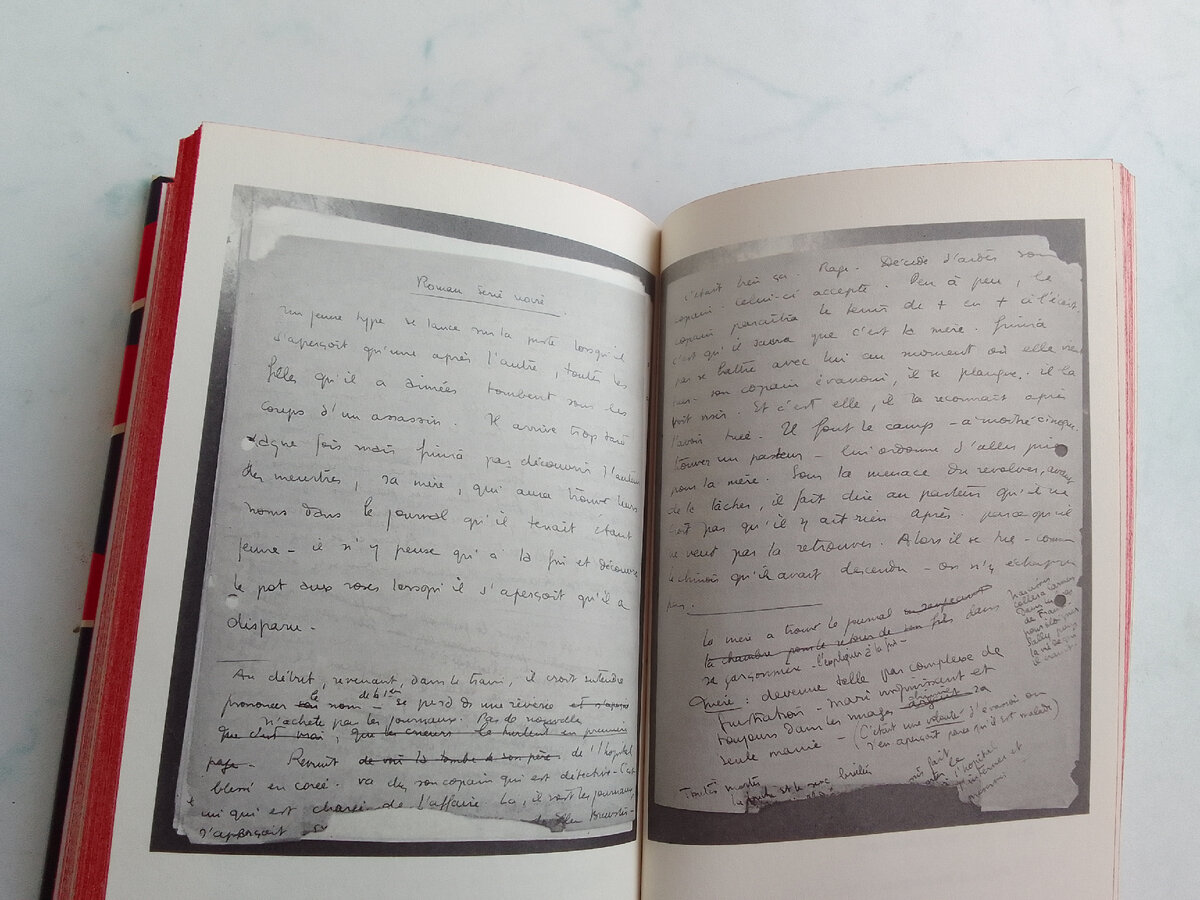 Roman Série noire.
Un jeune type se lance sur la piste lorsqu'il
s'aperçoit qu'une après l'autre, toutes les
filles qu'il a aimées tombent sous les
corps d'un assassin. Il arrive trop tard
chaque fois mais finira pas découvrir l'auteur
des meurtres, sa mère, qui aura trouvé leurs
noms dans le journal qu'il tenait étant
jeune - il n'y pense qu'à la fin et découvre
le pot aux roses lorsqu'il s'aperçoit qu'il a
disparu.
Au début, revenant, dans le train, il croit entendre
prononcer son le nom de la 1ère - se perd ds une rêverie
n'achète pas les journaux. Pas de nouvelle
que c'est vrai, que les crieurs le hurlent en première
page. Revenait de voir la tombe de son père. de l'hôpital
blessé en corée. va du son copain qui est détective - c'est
lui qui est chargé de l'affaire. Là, il voit les journaux,
s'aperçoit
c'était bien ça. Rage. Décide d'aider son
copain. Celui-ci accepte. Peu à peu, le
copain paraîtra le tenir de + en + à l'écart.
c'est qu'il saura que c'est la mère. Finira
par se battre avec lui au moment où elle
son copain évanoui, il se planque. il la
voit venir. Et c'est elle, il la reconnaît après
l'avoir tuée. Il fout le camp -
trouver un pasteur - lui ordonne d'aller prier
pour la mère. Sous la menace du revolver, avant
de le lâcher, il fait dire au pasteur qu'il ne
croit pas qu'il y ait rien après. parce qu'il
ne veut pas la retrouver. Alors il se tue - comme
le chinois qu'il avait descendu - on n'y échappe
pas.
La mère a trouvé le journal dans
la chambre pour le retour de son fils
sa garçonnière - l'expliquer à la fin -
Mère: devenue telle par complexe de
frustration - mari impuissant et
toujours dans les nuages - sa
seule manie - (C'était une volonté d'évasion on
s'en aperçoit parce qu'il est malade)
l'hôpital
interner et